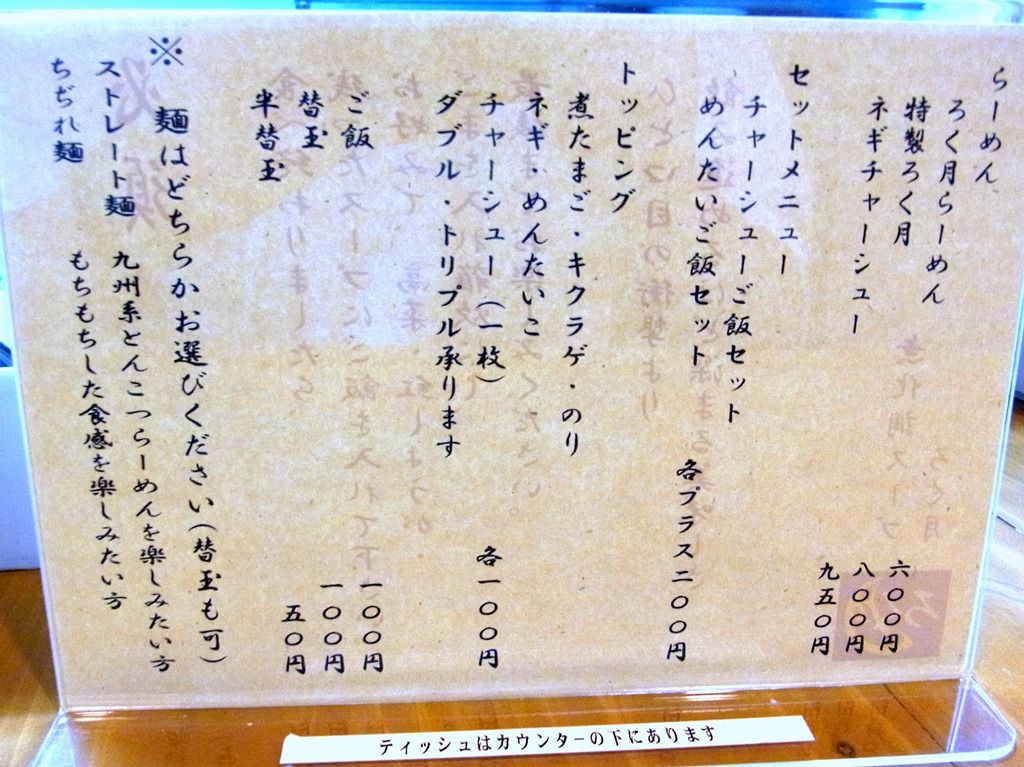 らーめん
ろく月らーめん 六〇〇円
特製ろく月 八〇〇円
ネギチャーシュー 九五〇円
セットメニュー
チャーシューご飯セット
めんたいご飯セット 各プラス二〇〇円
トッピング
煮たまご・キクラゲ・のり
ネギ・めんたいこ
チャーシュー(一枚) 各一〇〇円
ダブル・トリプル承ります
ご飯 一〇〇円
替玉 一〇〇円
半替玉 五〇円
※ 麺はどちらかお選びください(替玉も可)
ストレート麺 九州系とんこつらーめんを楽しみたい方
ちぢれ麺 もちもちした食感を楽しみたい方
ティッシュはカウンターの下にあります